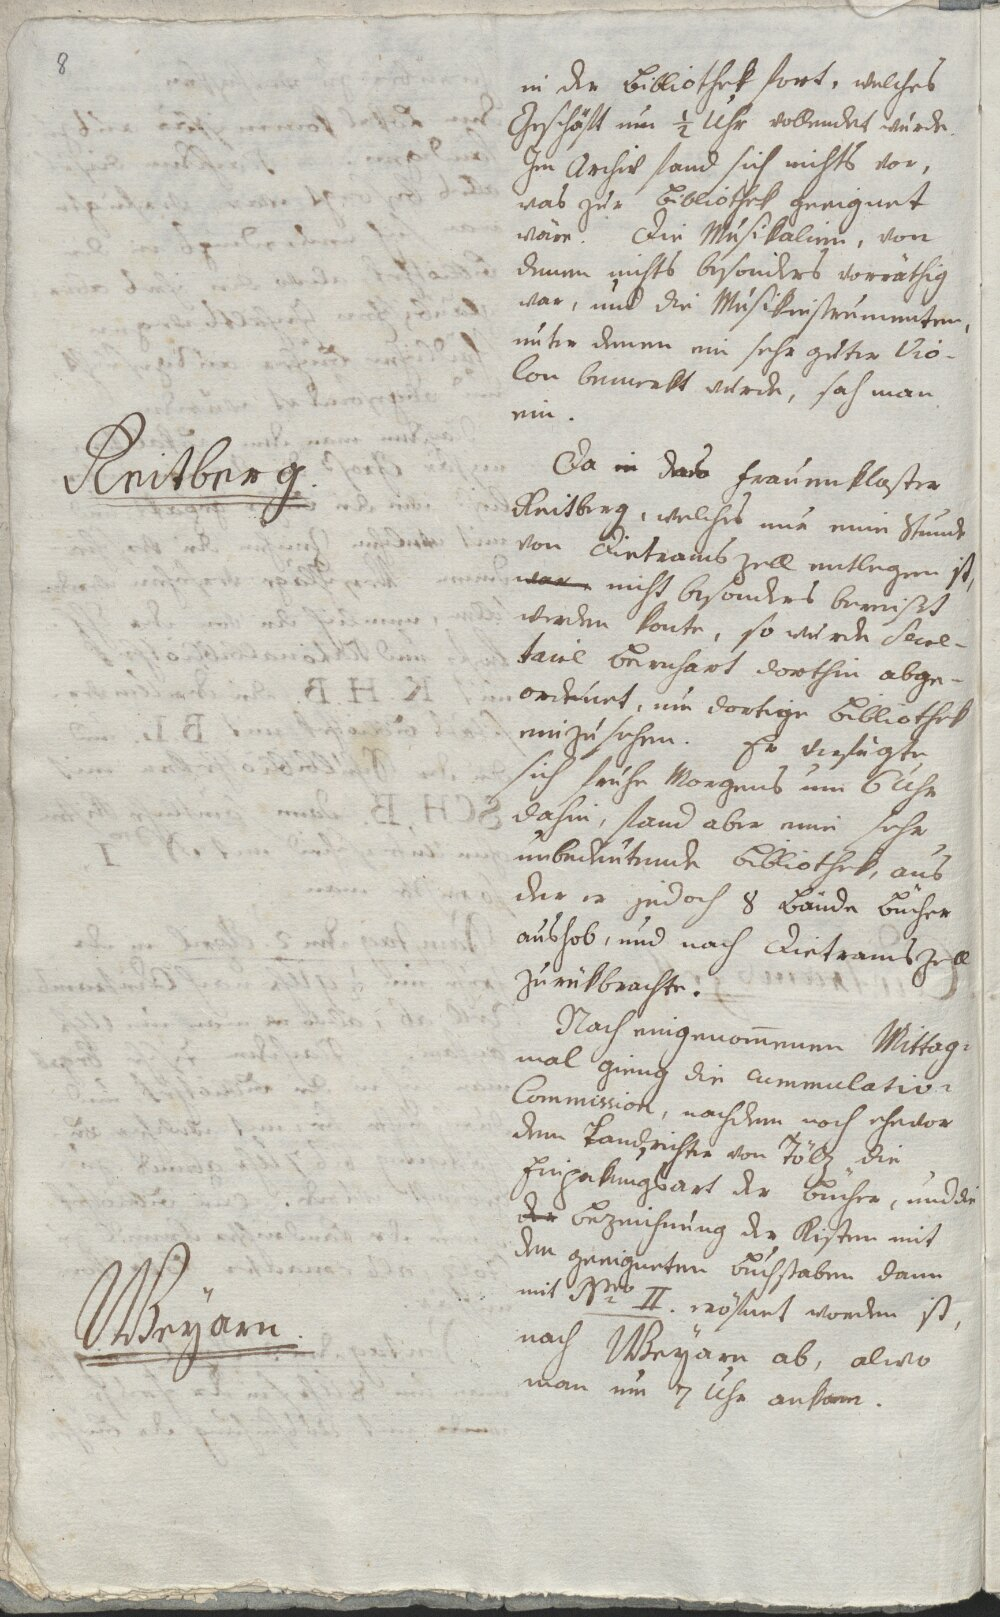 8
in der Bibliothek fort, welches
Geschäft um ½ Uhr vollendet wurde.
Im Archiv fand sich nichts vor,
was zur Bibliothek geeignet
wäre. Die Musikalien, von
denen nichts besonders vorräthig
war, und die Musikinstrumenten,
unter denen ein sehr guter Vio-
lon bemerkt wurde, sah man
ein.
Reitberg.
Da in das Frauenkloster
Reitberg, welches nur eine Stunde
von Dietramszell entlegen ist,
war nicht besonders bereiset
werden konte, so wurde Secre-
taire Bernhart dorthin abge-
ordnet, um dortige Bibliothek
einzusehen. Er verfügte
sich frühe Morgens um 6 Uhr
dahin, fand aber eine sehr
unbedeutende Bibliothek, aus
der er jedoch 8 Bände Bücher
aushob, und nach Dietramszell
zurükbrachte.
Nach eingenom̄enen Mittag-
mal gieng die cummulativ-
Commission, nachdem noch ehevor
dem Landrichter von Tölz die
Einpakungsart der Bücher, und die
der Bezeichnung der Kisten mit
den geeigneten Buchstaben dann
mit Nro II. eröfnet worden ist,
Weÿarn.
nach Weÿarn ab, alwo
man um 7 Uhr ankam.